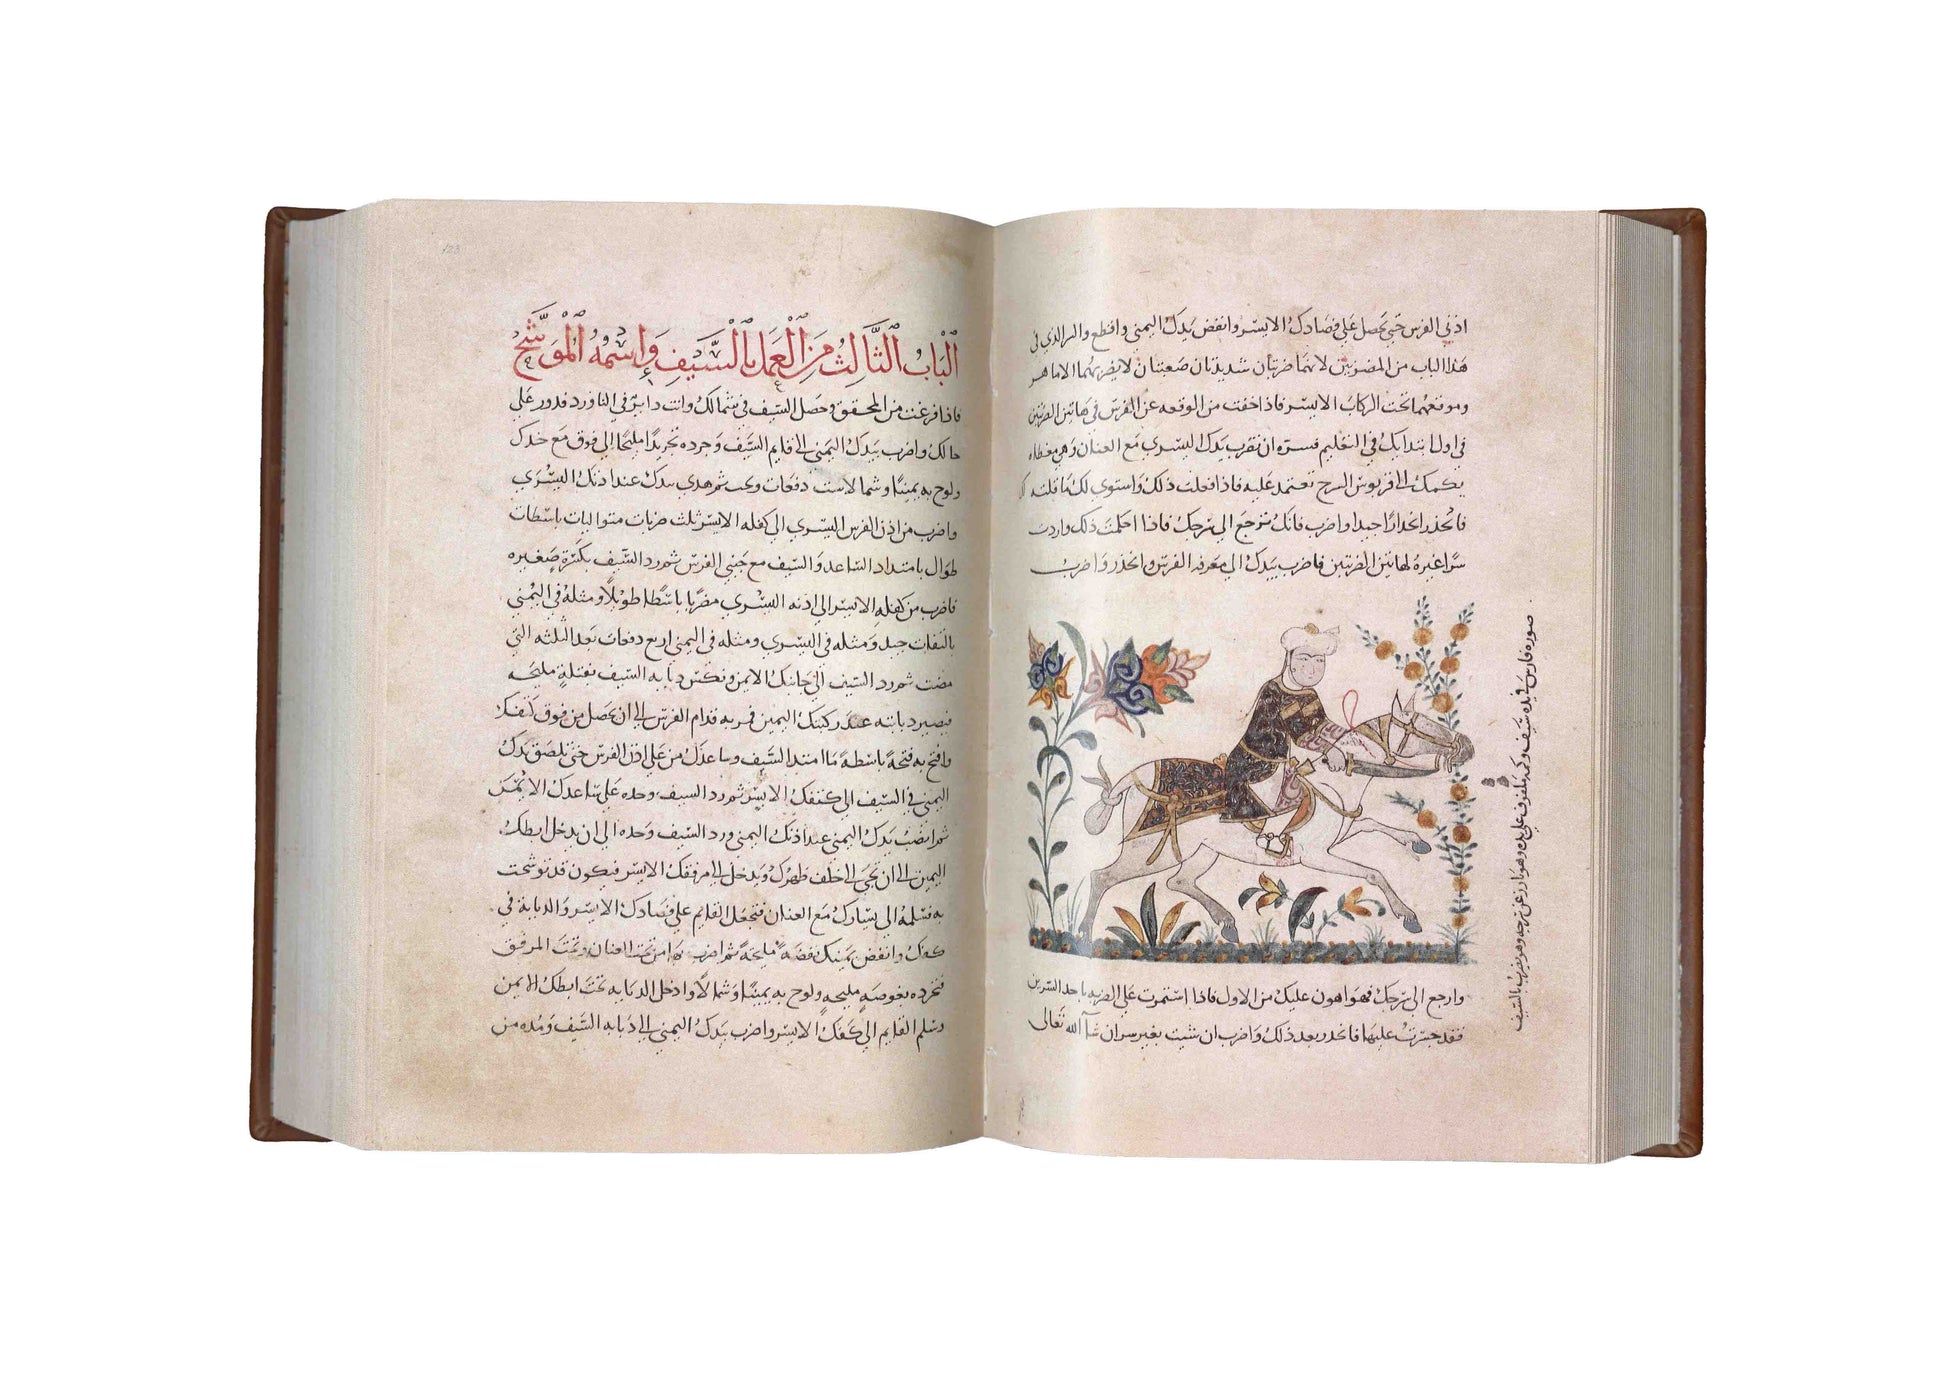 اذني الفرس حتي تحصل علي فصادك الايسر وانفض يدك اليمني واقطع والبر الذي في
هذا الباب من المضربين لانهما ضربتان شديدتان صعبتان لا يضربهما الا ماهر
وموقعهما تحت الركاب الايسر فاذا خفت من الوقعه عن الفرس في هاتين الضربتين
في اول ابتدايك في التعليم فسره ان تقرب يدك اليسري مع العنان وهي مغطاه
بكمك الي قربوس السرج تعتمد عليه فاذا فعلت ذلك واستوي لك ما قلته لك
فانحذر انحذارا جيدا واضرب فانك ترجع الي سرجك فاذا احكمت ذلك واردت
سرا غيره لهاتين الضربتين فاضرب بيدك الي معرفه الفرس وانحذر واضرب
صوره فارس في يده سيف وكمه ملفوف علي يده وهو بارز عن سرجه وهو يضرب بالسيف
وارجع الي سرجك فهو اهون عليك من الاول فاذا استمرت علي الضربه باحد السرين
فقد جسرت عليها فانحذر بعد ذلك واضرب ان شيت بغير سر ان شا الله تعالى
123
الباب الثالث من العمل بالسيف واسمه الموشح
فاذا فرغت من المحقق وحصل السيف في شمالك وانت داير في الناورد فدور علي
حالك واضرب بيدك اليمني الي قايم السيف وجرده تجريدا مليحا الي فوق مع خدك
ولوح به يمينا وشمالا ست دفعات وعب ثم هدي يدك عند اذنك اليسري
واضرب من اذن الفرس اليسري الي كفله الايسر ثلث ضربات متواليات باسطات
طوال بامتداد الساعد والسيف مع جنبي الفرس ثم رد السيف بكسرة صغيره
فاضرب من كفله الايسر الي اذنه اليسري مضربا باسطا طويلا ومثله في اليمني
بالتفات جيد ومثله في اليسري ومثله في اليمني اربع دفعات بعد الثلثه التي
مضت ثم رد السيف الي جانبك الايمن ونكس دبابه السيف بفتلة مليحه
فيصير دبابته عند ركبتك اليمين فمر به قدام الفرس الي ان تحصل من فوق كتفك
وافتح به فتحة باسطة ما امتد السيف وساعدك من علي اذن الفرس حتي تلصق يدك
اليمني في السيف الي كتفك الايسر ثم رد السيف وحده علي ساعدك الايمن
ثم انصب يدك اليمني عند اذنك اليمني ورد السيف وحده الي ان يدخل ابطك
اليمين الي ان تجي الي خلف ظهرك ويدخل الي مرفقك الايسر فيكون قد توشحت
به فسلمه الي يسارك مع العنان فتجعل القايم علي فصادك الايسر والدبابة في
كمك وانفض يمينك نفضة مليحة ثم اضرب بها من تحت العنان وتحت المرفق
فتجرده بغوصه مليحه ولوح به يمينا وشمالا وادخل الدبابه تحت ابطك الايمن
وسلم القايم الي كفك الايسر واضرب بيدك اليمني الي دبابه السيف ومده من